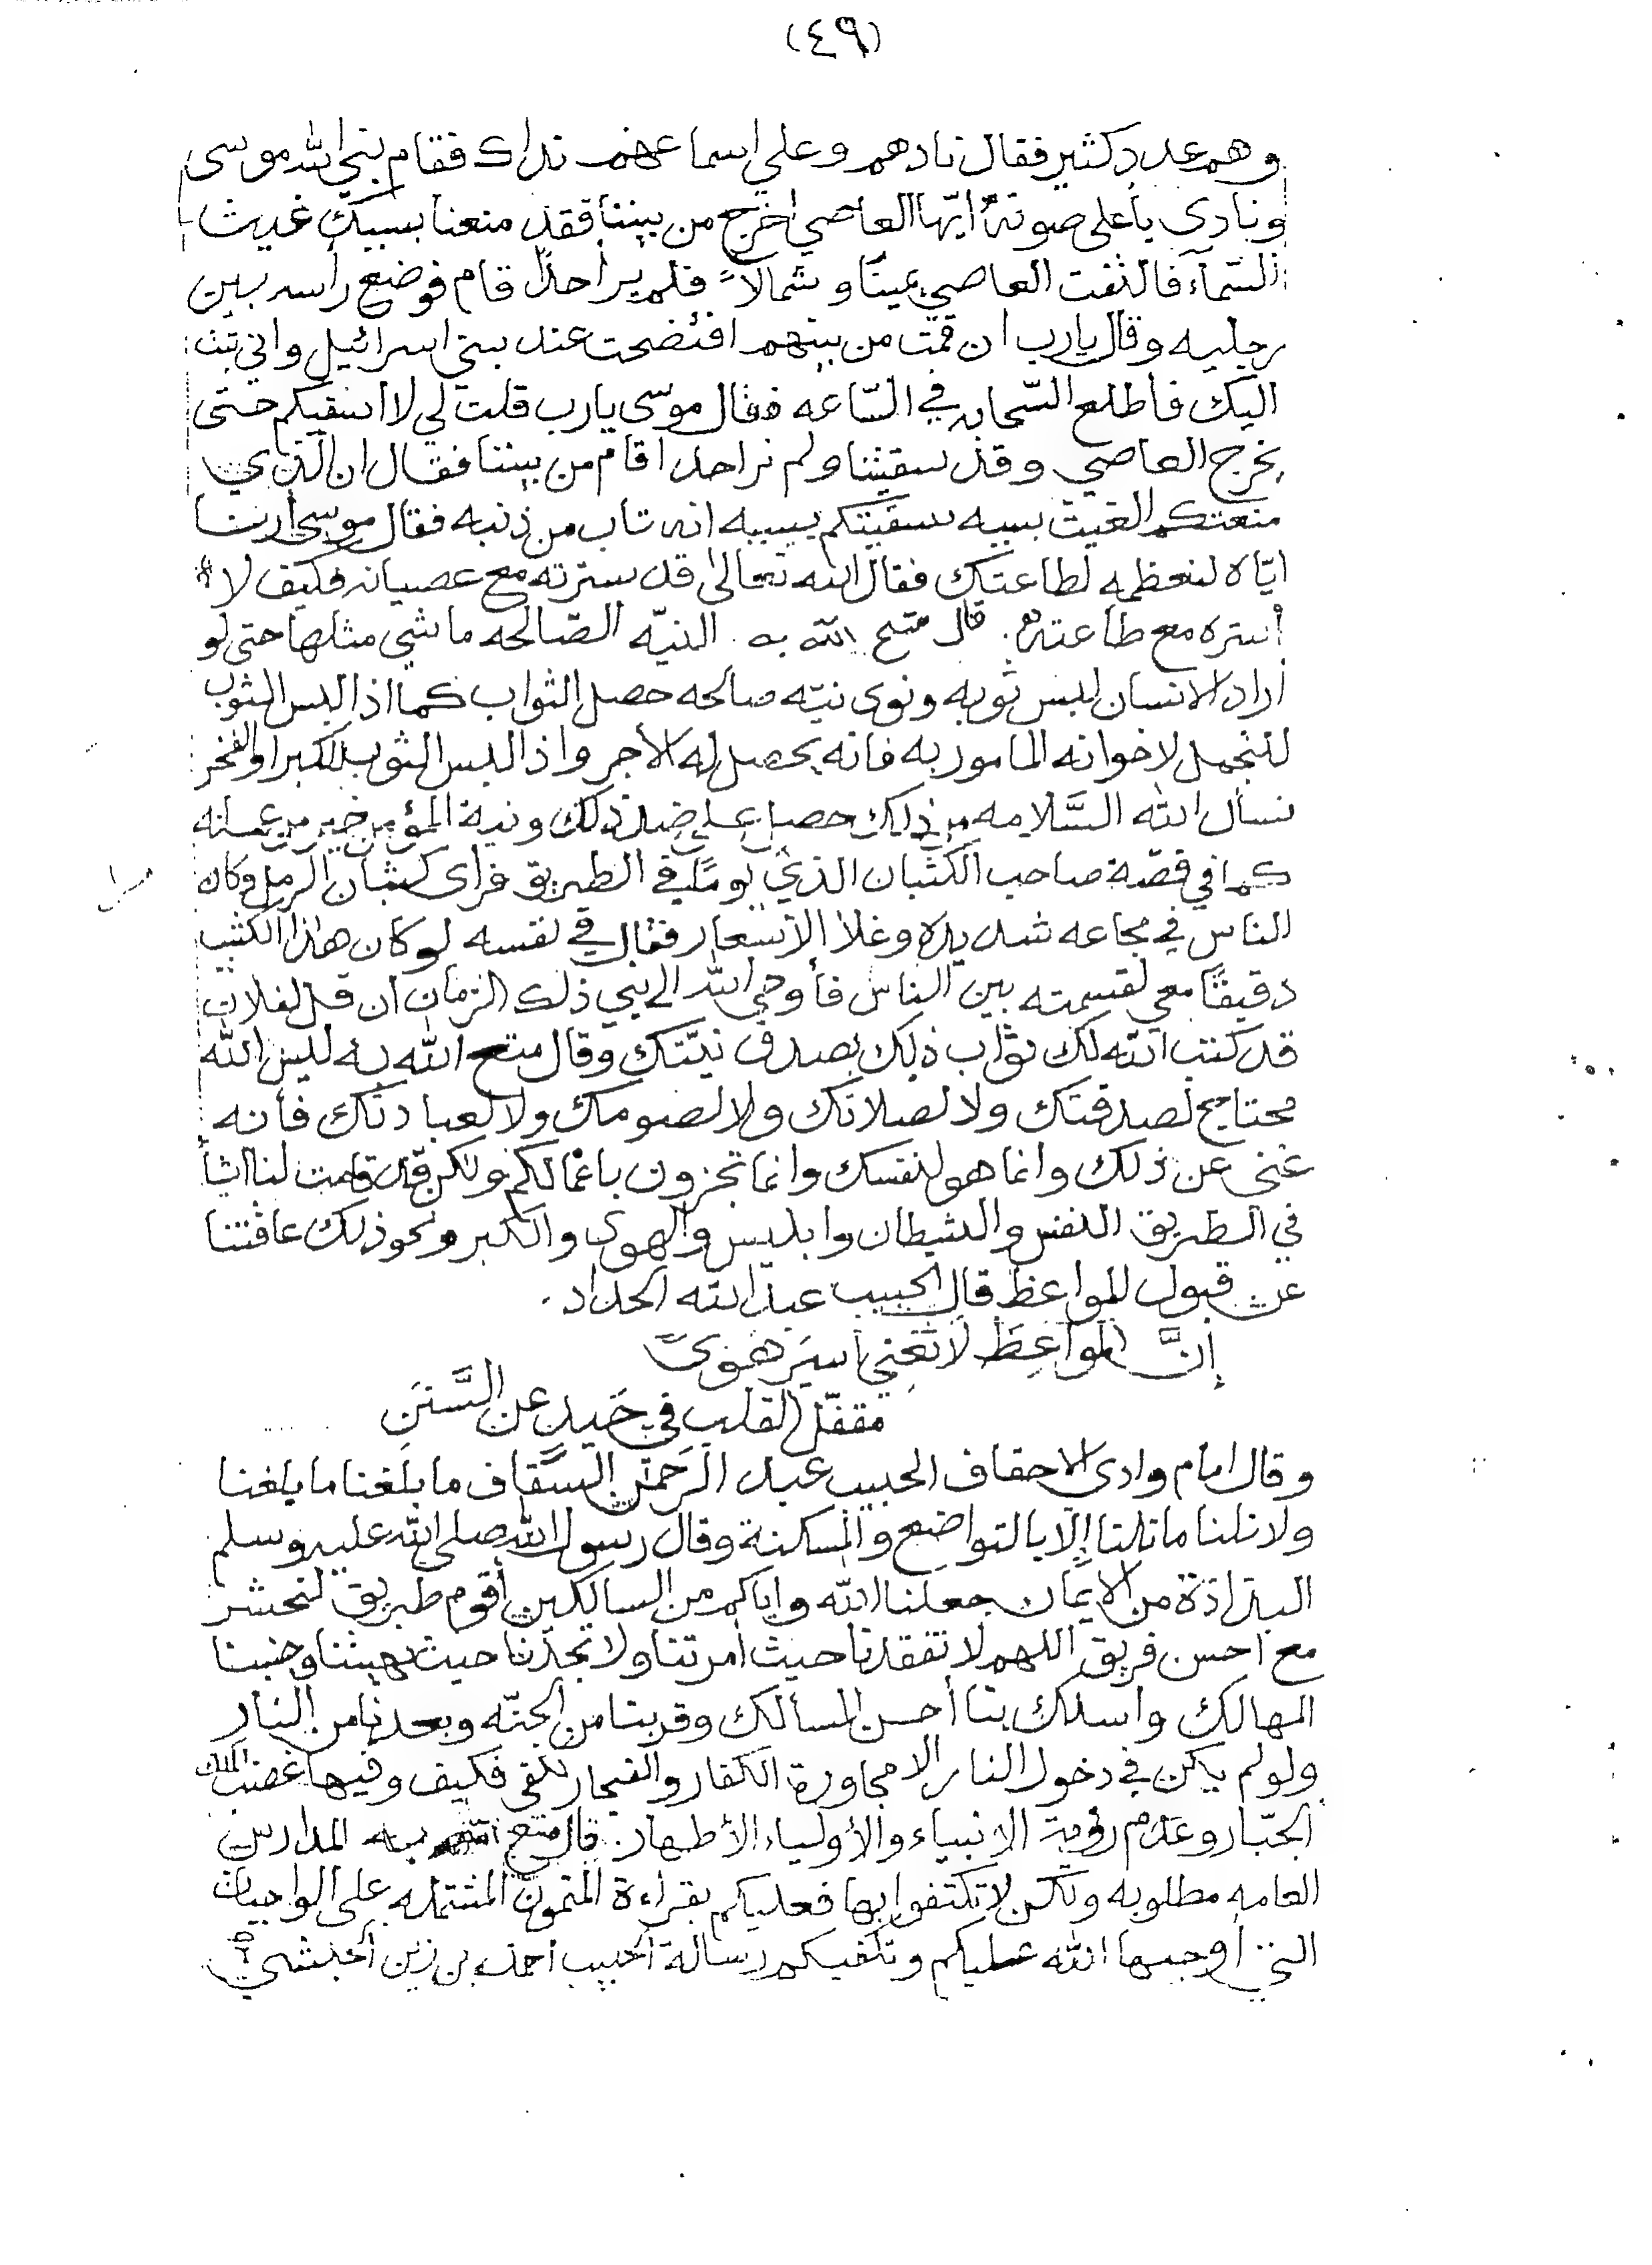 (٤٩)
وهم عدد كثير فقال نادهم وعلي اسماعهم نداك فقام نبي الله موسى
ونادى بأعلى صوته ايّها العاصي اخرج من بيننا فقد منعنا بسببك غيث
السّمآء فالتفت العاصي يمينًا وشمالاً فلم ير احدًا قام فوضع رأسه بين
رجليه وقال يارب ان قمت من بينهم افتضحت عند بني اسرائيل واني تبت
اليك فاطلع السّحاب في السّاعه فقال موسى يارب قلت لي لا اسقيكم حتى
يخرج العاصي وقد سقيتنا ولم نر احد اقام من بيننا فقال ان الّذي
منعتكم الغيث بسببه سقيتكم بسببه انه تاب من ذنبه فقال موسى أرنا
ايّاه لنعظمه لطاعتك فقال الله تعالى قد سترته مع عصيانه فكيف لا
أستره مع طاعته. قال متع الله به. النيّه الصّالحه ما شي مثلها حتى لو
أراد الانسان لبس ثوبه ونوى نيّه صالحه حصل الثواب كما اذا لبس الثوب
للتجمل لاخوانه المامور به فانه يحصل له الأجر واذا لبس الثوب للكبر او الفخر
نسأل الله السَّلامه من ذلك حصل على ضد ذلك ونية المؤمن خير من عمله
كما في قصّة صاحب الكثبان الذي يومًا في الطريق فرأى كثبان الرمل وكان
الناس في مجاعه شديده وغلاء الأسعار فقال في نفسه لو كان هذا الكثيب
دقيقًا معي لقسمته بين الناس فأوحى الله الى نبي ذلك الزمان ان قل لفلان
قد كتب الله لك ثواب ذلك بصدق نيّتك وقال متع الله به ليس الله
محتاج لصدقتك ولا لصلاتك ولا لصومك ولا لعبادتك فأنه
غني عن ذلك وانما هو لنفسك وانما تجزون بأعمالكم ولكن قد قامت لنا اشيأ
في الطريق النفس والشيطان وابليس والهوى والكبر ونحو ذلك عاقتنا
عن قبول المواعظ قال الحبيب عبد الله الحداد.
إنَّ المواعِظَ لا تُغنِي أسِيَر هَوىً
مقفّل القلب في حَيدٍ عن السَّنَنِ
وقال امام وادى الاحقاف الحبيب عبد الرَحمن السَّقاف ما بلغنا ما بلغنا
ولا نلنا ما نلنا إلّا بالتواضع والمسكنة وقال رسول الله صلى الله عليه وسلم
البذاذة من الايمان جعلنا الله واياكم من السالكين أقوم طريق لنحشر
مع احسن فريق اللهم لا تفقدنا حيث أمرتنا ولا تجدنا حيث نهيتنا وجنبنا
المهالك واسلك بنا أحسن المسالك وقربنا من الجنّه وبعدنا من النار
ولو لم يكن في دخول النار الا مجاورة الكفار والفجار لكفى فكيف وفيها غضب الملك
الجبّار وعدم رؤية الانبياء والأولياء الأطهار. قال متع الله به المدارس
العامه مطلوبه ولكن لا تكتفوا بها فعليكم بقراءة المتون المشتمله على الواجبات
التي أوجبها الله عليكم وتكفيكم رسالة الحبيب احمد بن زين الحبشي